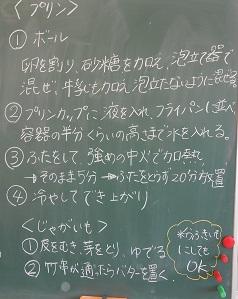 ＜プリン＞
① ボール
卵を割り、砂糖を加え、泡立て器で
混ぜ、牛乳も加え、泡立たないように混ぜる
② プリンカップに液を入れ、フライパンに並べ
容器の半分くらいの高さまで水を入れる。
③ ふたをして、強めの中火で加熱
→そのまま5分 →ふたをとらず20分放置
④ 冷やしてでき上がり
＜じゃがいも＞
① 皮をむき、芽をとり、ゆでる
② 竹串が通ったらバターを置く。
※
にしても
OK